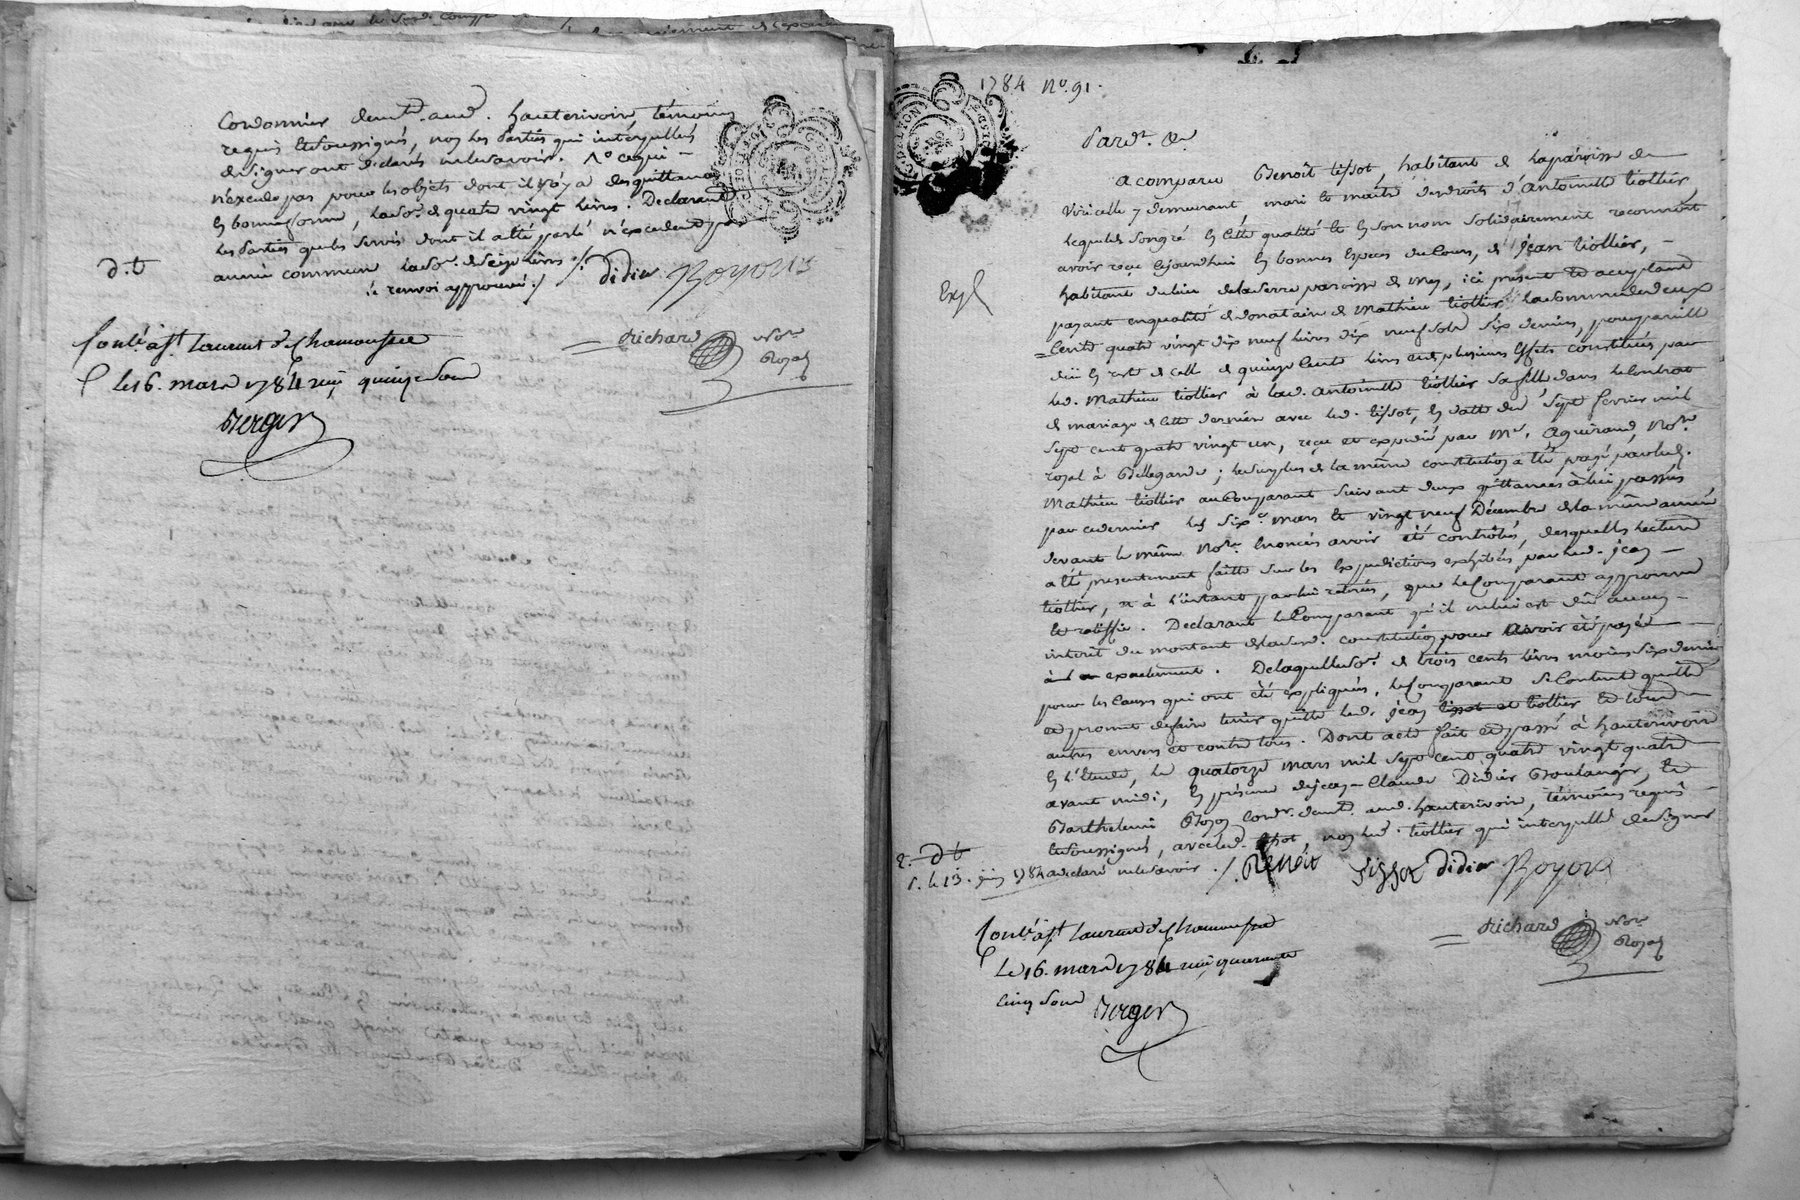 Cordonnier demt. aud. hauterivoir témoins
requis & soussignés, non les parties qui interpellés
de signer ont declarés ne le savoir. Ce qui
n'excede pas pour les objets dont il n'y a des quittances
en bonne forme, la so. de quatre vingt livres. Declarant
les parties que les servis dont il a été parlé n'excedent pas
année commune la so. de seize livres ./.
le renvoi approuvé ./ didier Royou
d. t
Contlé. à St. Laurent de Chamousset
le 16. mars 1784 reçu quinze sous
Berger
Richard Nore.
Royal
1784 No. 91.
Pardt. &a.
a comparu Benoît tissot, habitant de la paroisse de
Viricelle y demeurant mari et maître des droits d'antoinette tiollier,
lequel de son gré en cette qualité et en son nom solidairement reconnoit
avoir reçu ce jourd'hui en bonnes especes du Cours, de jean tiollier,
habitant du lieu de laserre paroisse de mey, ici present et acceptant
payant en qualité de donataire de Mathieu tiollier la somme de deux
Cents quatre vingt dix neuf livres dix neuf sols six deniers, pour pareille
dûë en reste de celle de quinze cents livres en plusieurs effets constitués par
led. Mathieu tiollier à lad. antoinette tiollier sa fille dans le Contrat
de mariage de cette derniere avec led. tissot, en datte du sept fevrier mil
sept cent quatre vingt un, reçu et expedié par Me. Aguiraud, Nore.
royal à Bellegarde; le surplus de la même constitution a été payé par led.
Mathieu tiollier au Comparant suivant deux quittances à lui passées
par ce dernier les six mars et vingt neuf Décembre de la même année
devant le même Nore. énoncées avoir été contrôlées, desquelles lecture
a été presentement faitte sur les expeditions exhibées par led. jean
tiollier, & à l'instant par lui retirées, que le Comparant approuve
et ratiffie. Declarant le Comparant qu'il ne lui est dû aucun
interêt du montant de lad. constitution pour avoir été payée
exactement. De laquelle so. de trois cents livres moins six deniers
pour les causes qui ont été expliquées, le Comparant se Contente quitte
et promet de faire tenir quitte led. jean tissot et tiollier et tous
autres envers et contre tous. Dont acte fait et passé à hauterivoir
en l'étude, le quatorze mars mil sept cent quatre vingt quatre
avant midi, en présence de jean-Claude Didier Boulanger, et
Barthelemi Royou Cordr. demt. aud. hauterivoir, témoins requis
& soussignés, avec led. tissot, non led. tiollier qui interpellé de signer
a declaré ne le savoir ./. Benoit tissot didier Royou
Exp
d t
le 13. juin 1784
Contlé. à St. Laurent de Chamousset
Le 16. mars 1784 reçu quarante
cinq sous Berger
Richard Nore.
Royal